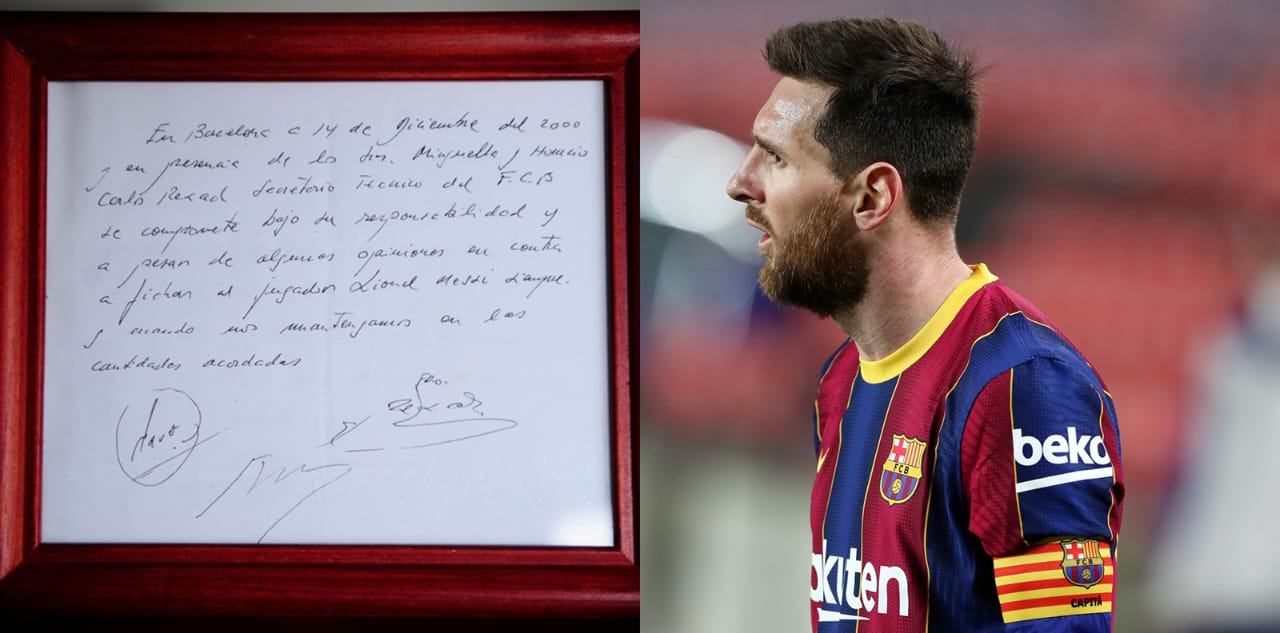 En Barcelona a 14 de Diciembre del 2000
y en presencia de los Srs. Minguella y Horacio
Carlos Rexach Secretario Tecnico del F.C.B
se compromete bajo su responsabilidad y
a pesar de algunas opiniones en contra
a fichar al jugador Lionel Messi siempre.
y cuando nos mantengamos en las
cantidades acordadas
Fdo.
beko
FCB
akuten
FCB
CAPITÀ